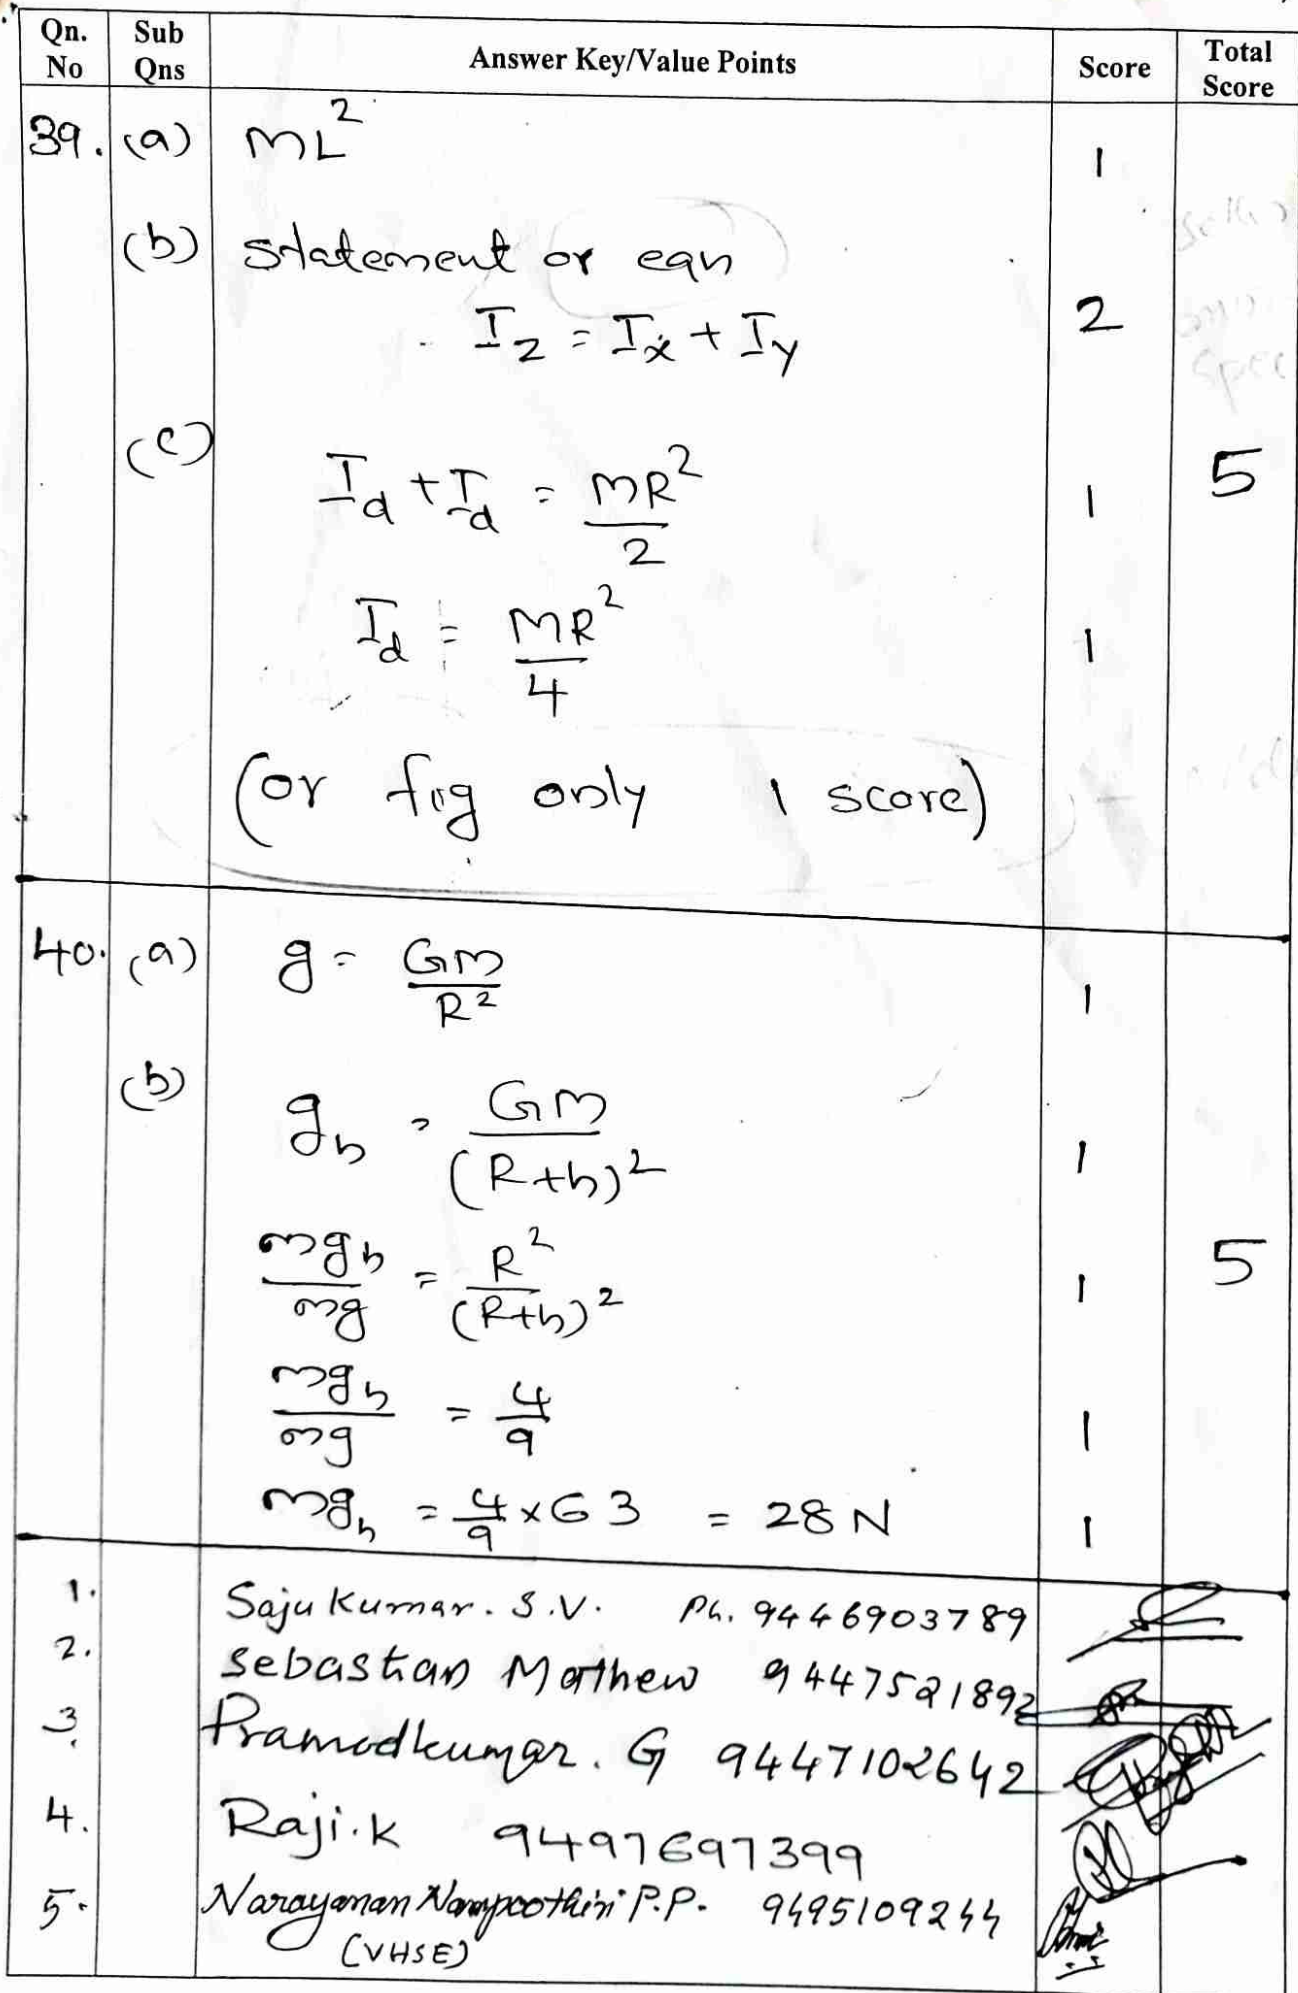 Qn. No Sub Qns Answer Key/Value Points Score Total Score
39. (a) ML² 1
(b) Statement or eqn
I_z = I_x + I_y 2
(c) I_d + I_d = MR²/2 1 5
I_d = MR²/4 1
(or fig only 1 score)
40. (a) g = GM/R² 1
(b) g_h = GM/(R+h)² 1
mg_h/mg = R²/(R+h)² 1 5
mg_h/mg = 4/9 1
mg_h = 4/9 × 63 = 28 N 1
1. Saju Kumar. S.V. Ph. 9446903789
2. Sebastian Mathew 9447521892
3. Pramodkumar. G 9447102642
4. Raji.K 9497697399
5. Narayanan Nampoothiri P.P. 9495109244
(VHSE)